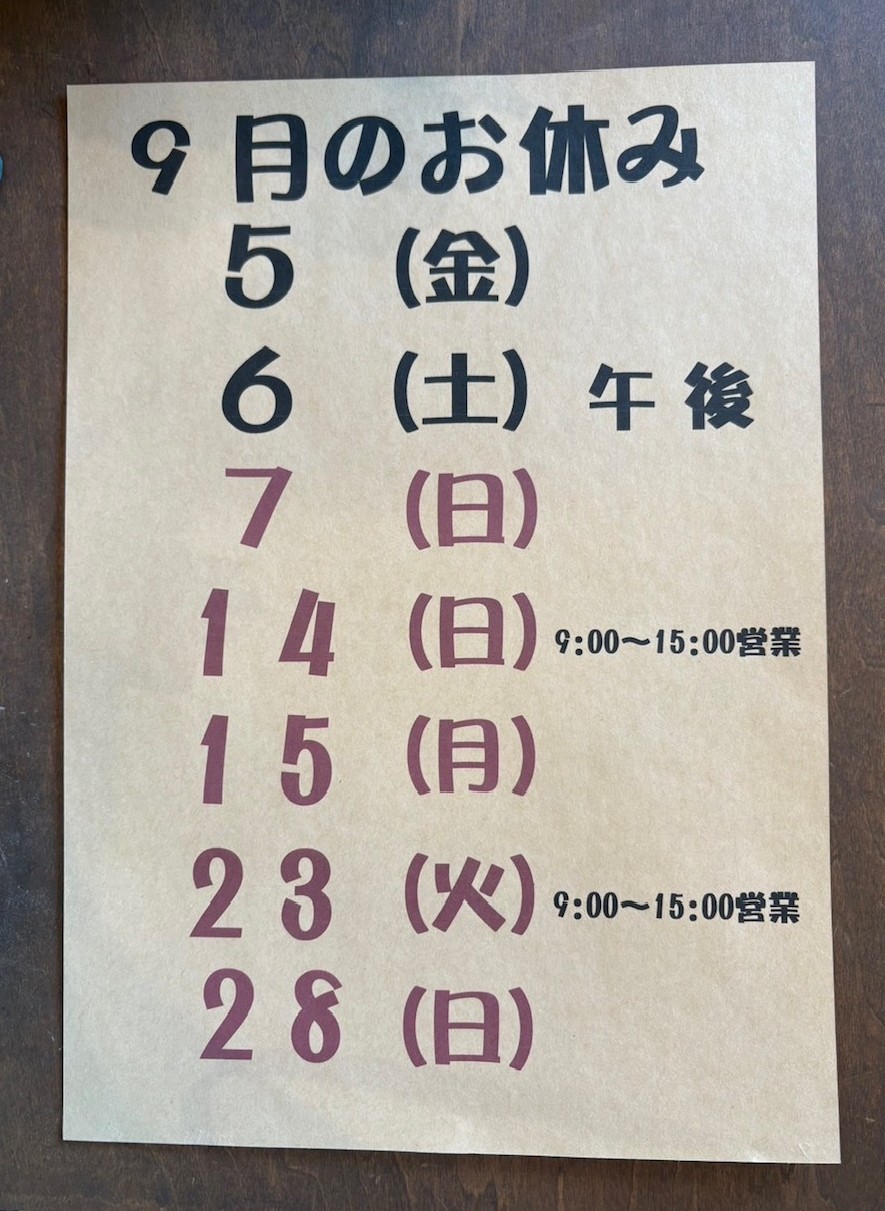 9月のお休み
5 (金)
6 (土) 午後
7 (日)
14 (日) 9:00〜15:00営業
15 (月)
23 (火) 9:00〜15:00営業
28 (日)